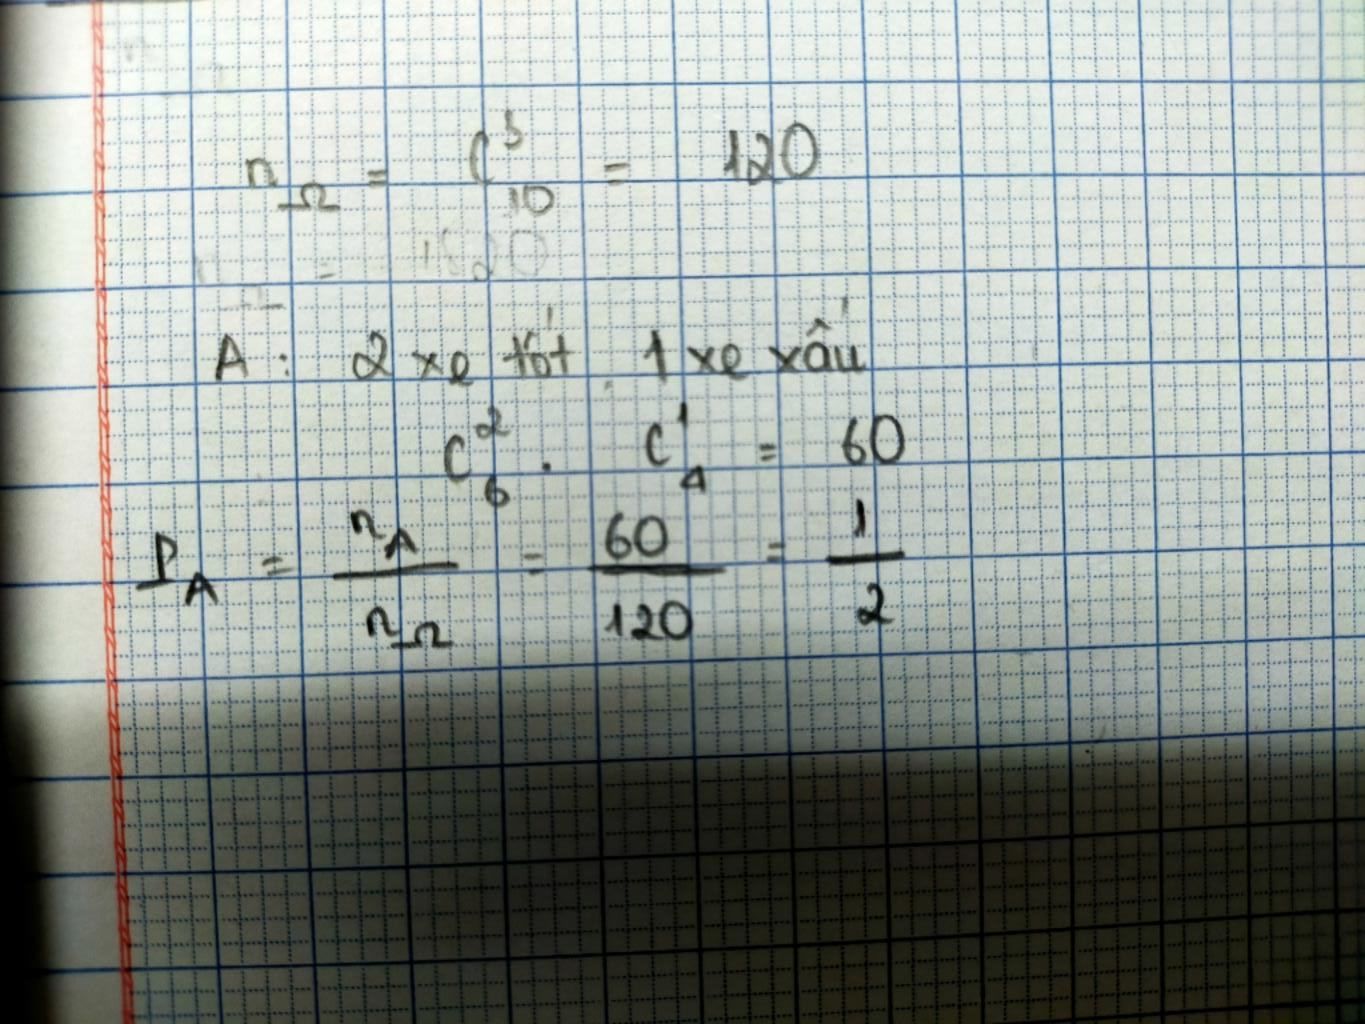 n_Ω = C³₁₀ = 120
A: 2 xe tốt, 1 xe xấu
C²₆ . C¹₄ = 60
P_A = n_A / n_Ω = 60 / 120 = 1 / 2